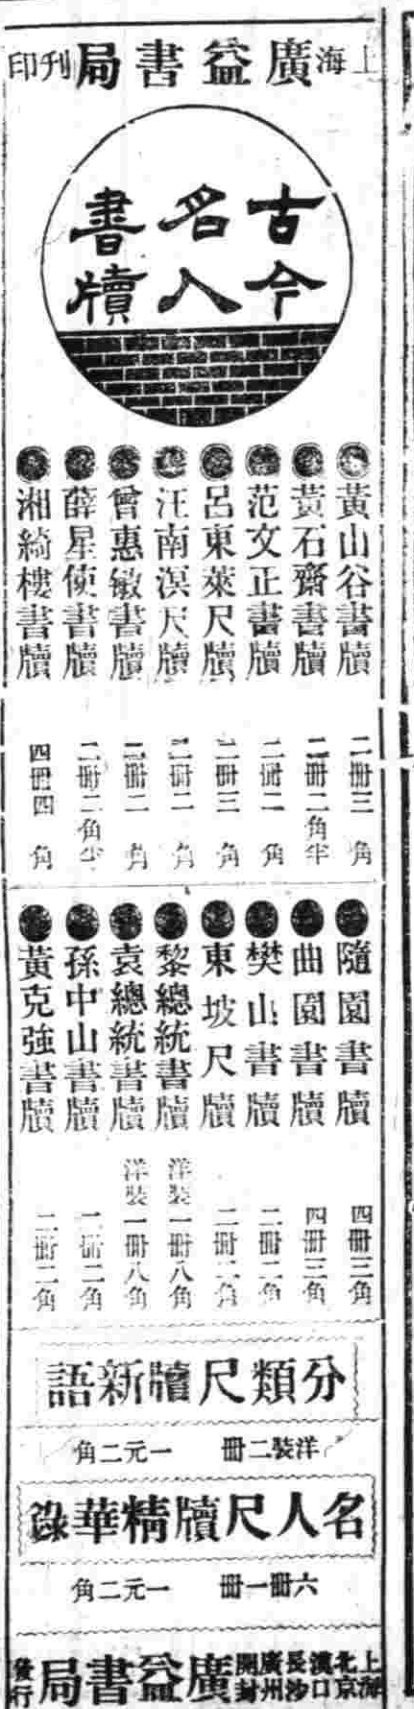 上海廣益書局刊印
古今
名人
書牘
黃山谷書牘 二冊三角
黃石齋書牘 二冊二角半
范文正書牘 二冊二角
呂東萊尺牘 二冊三角
汪南溟尺牘 二冊二角
曾惠敏書牘 二冊二角
薛星使書牘 二冊二角半
湘綺樓書牘 四冊四角
隨園書牘 四冊三角
曲園書牘 四冊三角
樊山書牘 二冊二角
東坡尺牘 二冊二角
黎總統書牘 洋裝一冊八角
袁總統書牘 洋裝一冊八角
孫中山書牘 冊二角
黃克強書牘 二冊二角
分類尺牘新語
洋裝二冊 一元二角
名人尺牘精華錄
六冊一冊 一元二角
上海北京漢口長沙廣州開封廣益書局發行